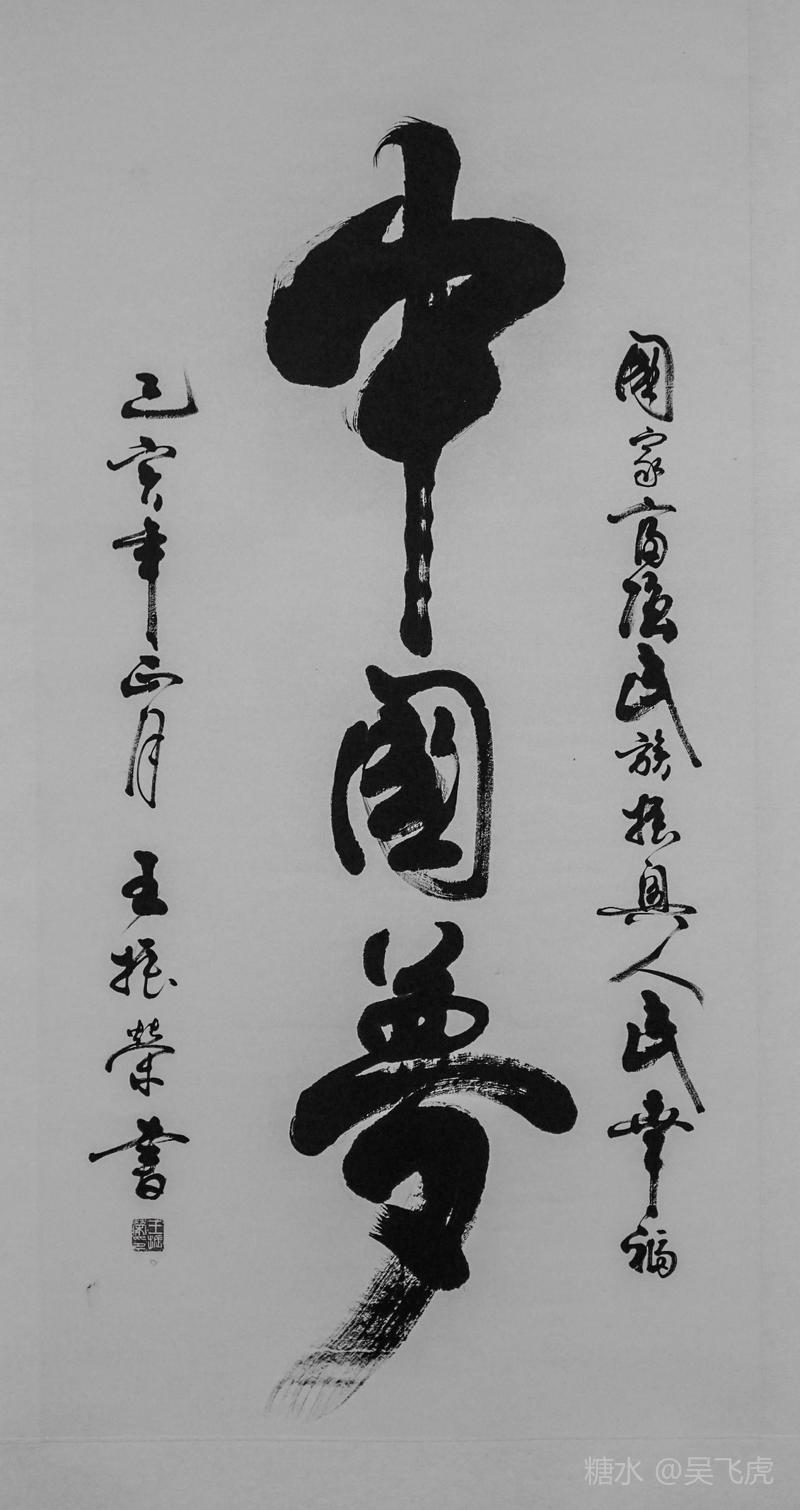 國家富强民族振興人民幸福
中國夢
己亥年正月 王振榮書
糖水 @吴飞虎